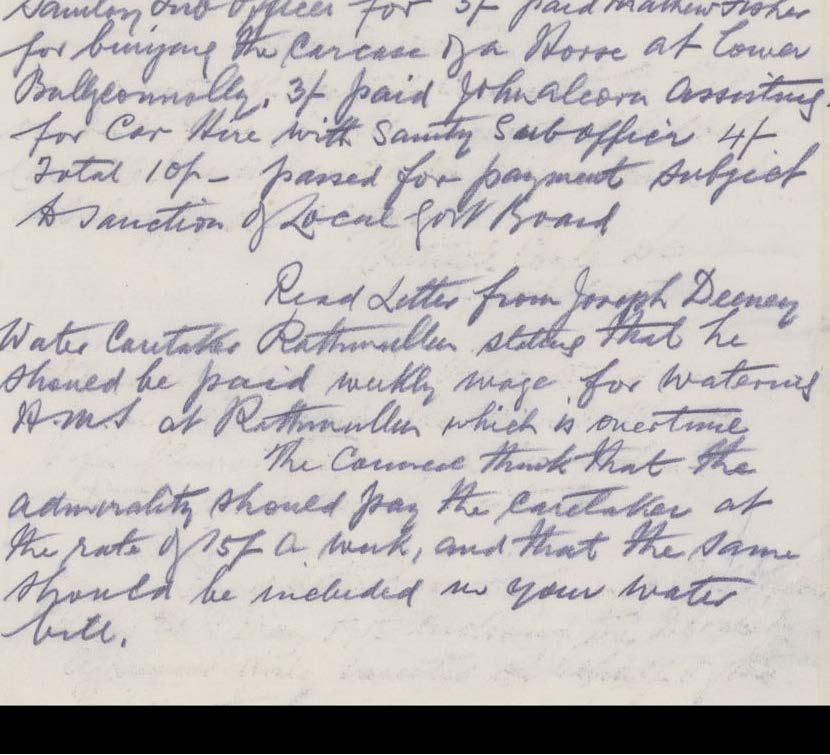 Sanitary Sub Officer for 3/- paid Mathew Fisher
for burying the Carcase of a Horse at Lower
Ballyconnolly, 3/- paid John Alcorn Assisting
for Car Hire with Sanity Sub officer 4/-
Total 10/- passed for payment subject
to sanction of Local Govt Board
Read Letter from Joseph Deeney
Water Caretaker Rathmullen stating that he
should be paid weekly wage for watering
H.M.S at Rathmullen which is overtime
The Council think that the
admirality should pay the Caretaker at
the rate of 15/- a week, and that the same
should be included in your water
bill.